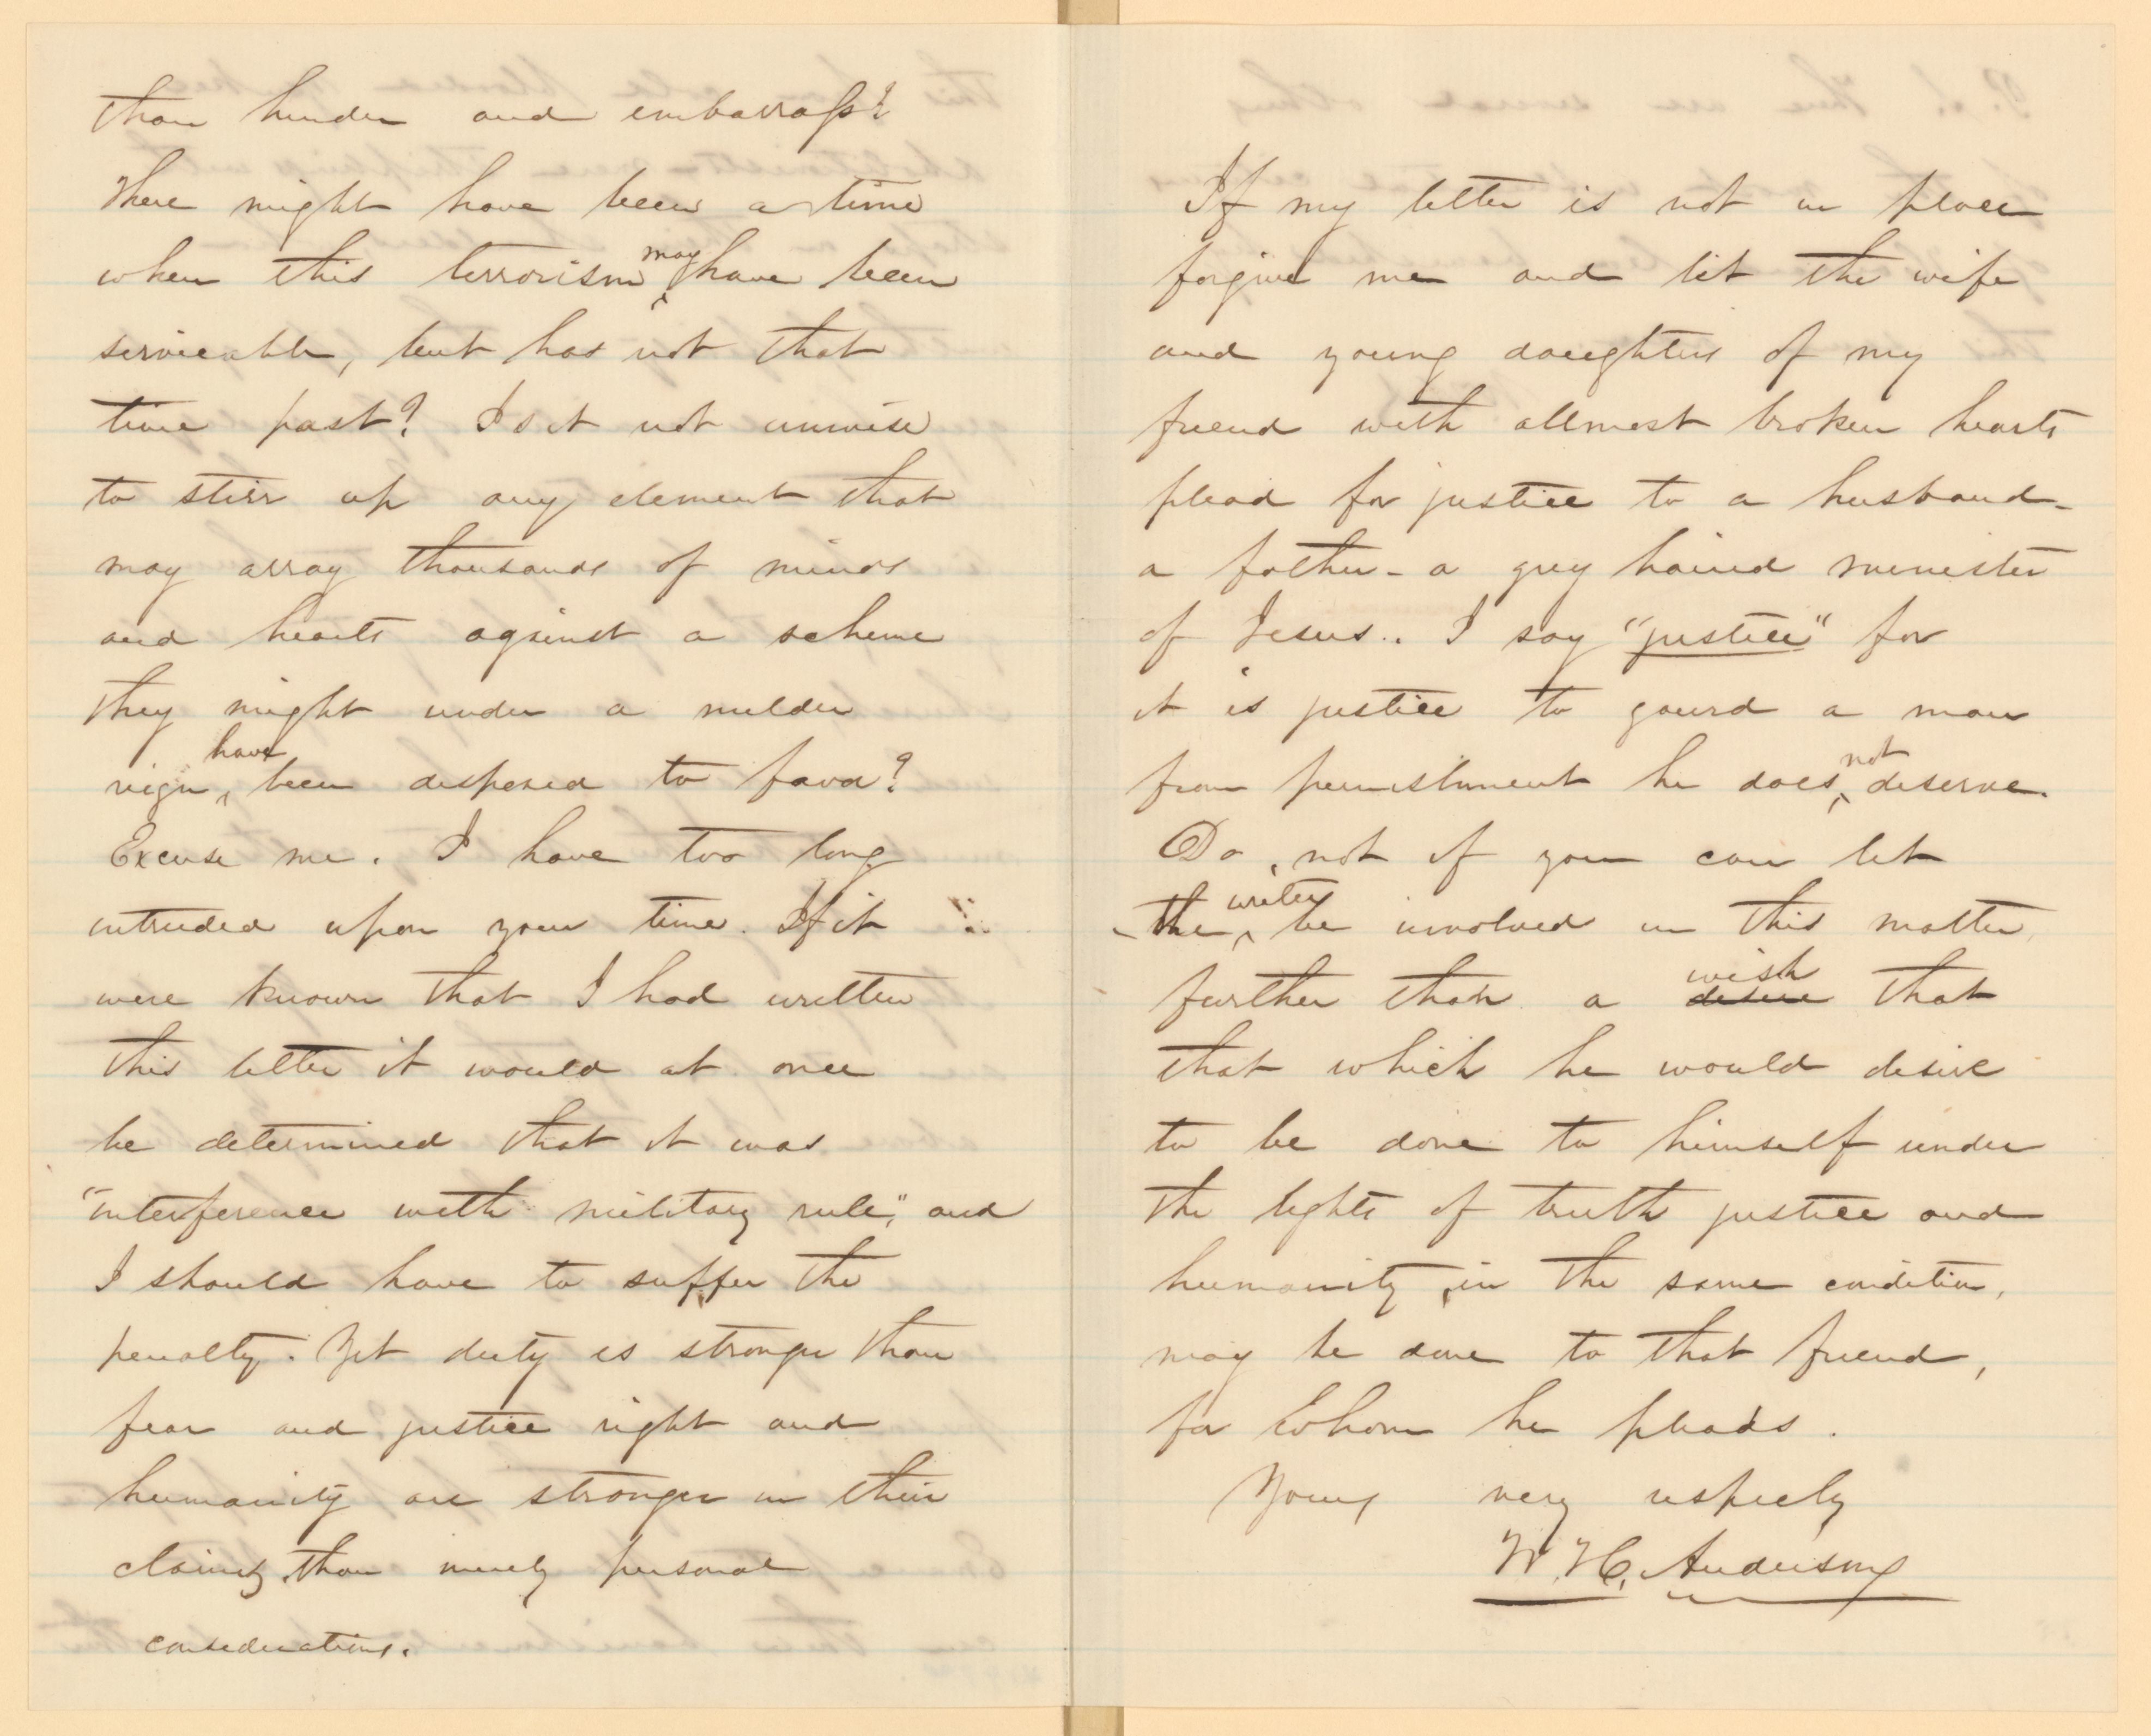 than hinder and embarrass?
There might have been a time
when this terrorism may have been
serviceable, but has not that
time past? Is it not unwise
to stirr up any element that
may array thousands of minds
and hearts against a scheme
they might under a milder
reign have been disposed to favor?
Excuse me. I have too long
intruded upon your time. If it
were known that I had written
this letter it would at once
be determined that it was
"interference with military rule," and
I should have to suffer the
penalty. Yet duty is stronger than
fear and justice right and
humanity are stronger in their
claims than merely personal
considerations.
If my letter is not in place
forgive me and let the wife
and young daughters of my
friend with allmost broken hearts
plead for justice to a husband-
a father - a grey haired minister
of Jesus.. I say "justice" for
it is justice to gaurd a man
from punishment he does not deserve.
Do, not if you can let
the writer be involved in this matter
further than a desire wish that
that which he would desire
to be done to himself under
the lights of truth justice and
humanity, in the same condition,
may be done to that friend,
for whom he pleads.
Yours very respecly
W. H. Anderson